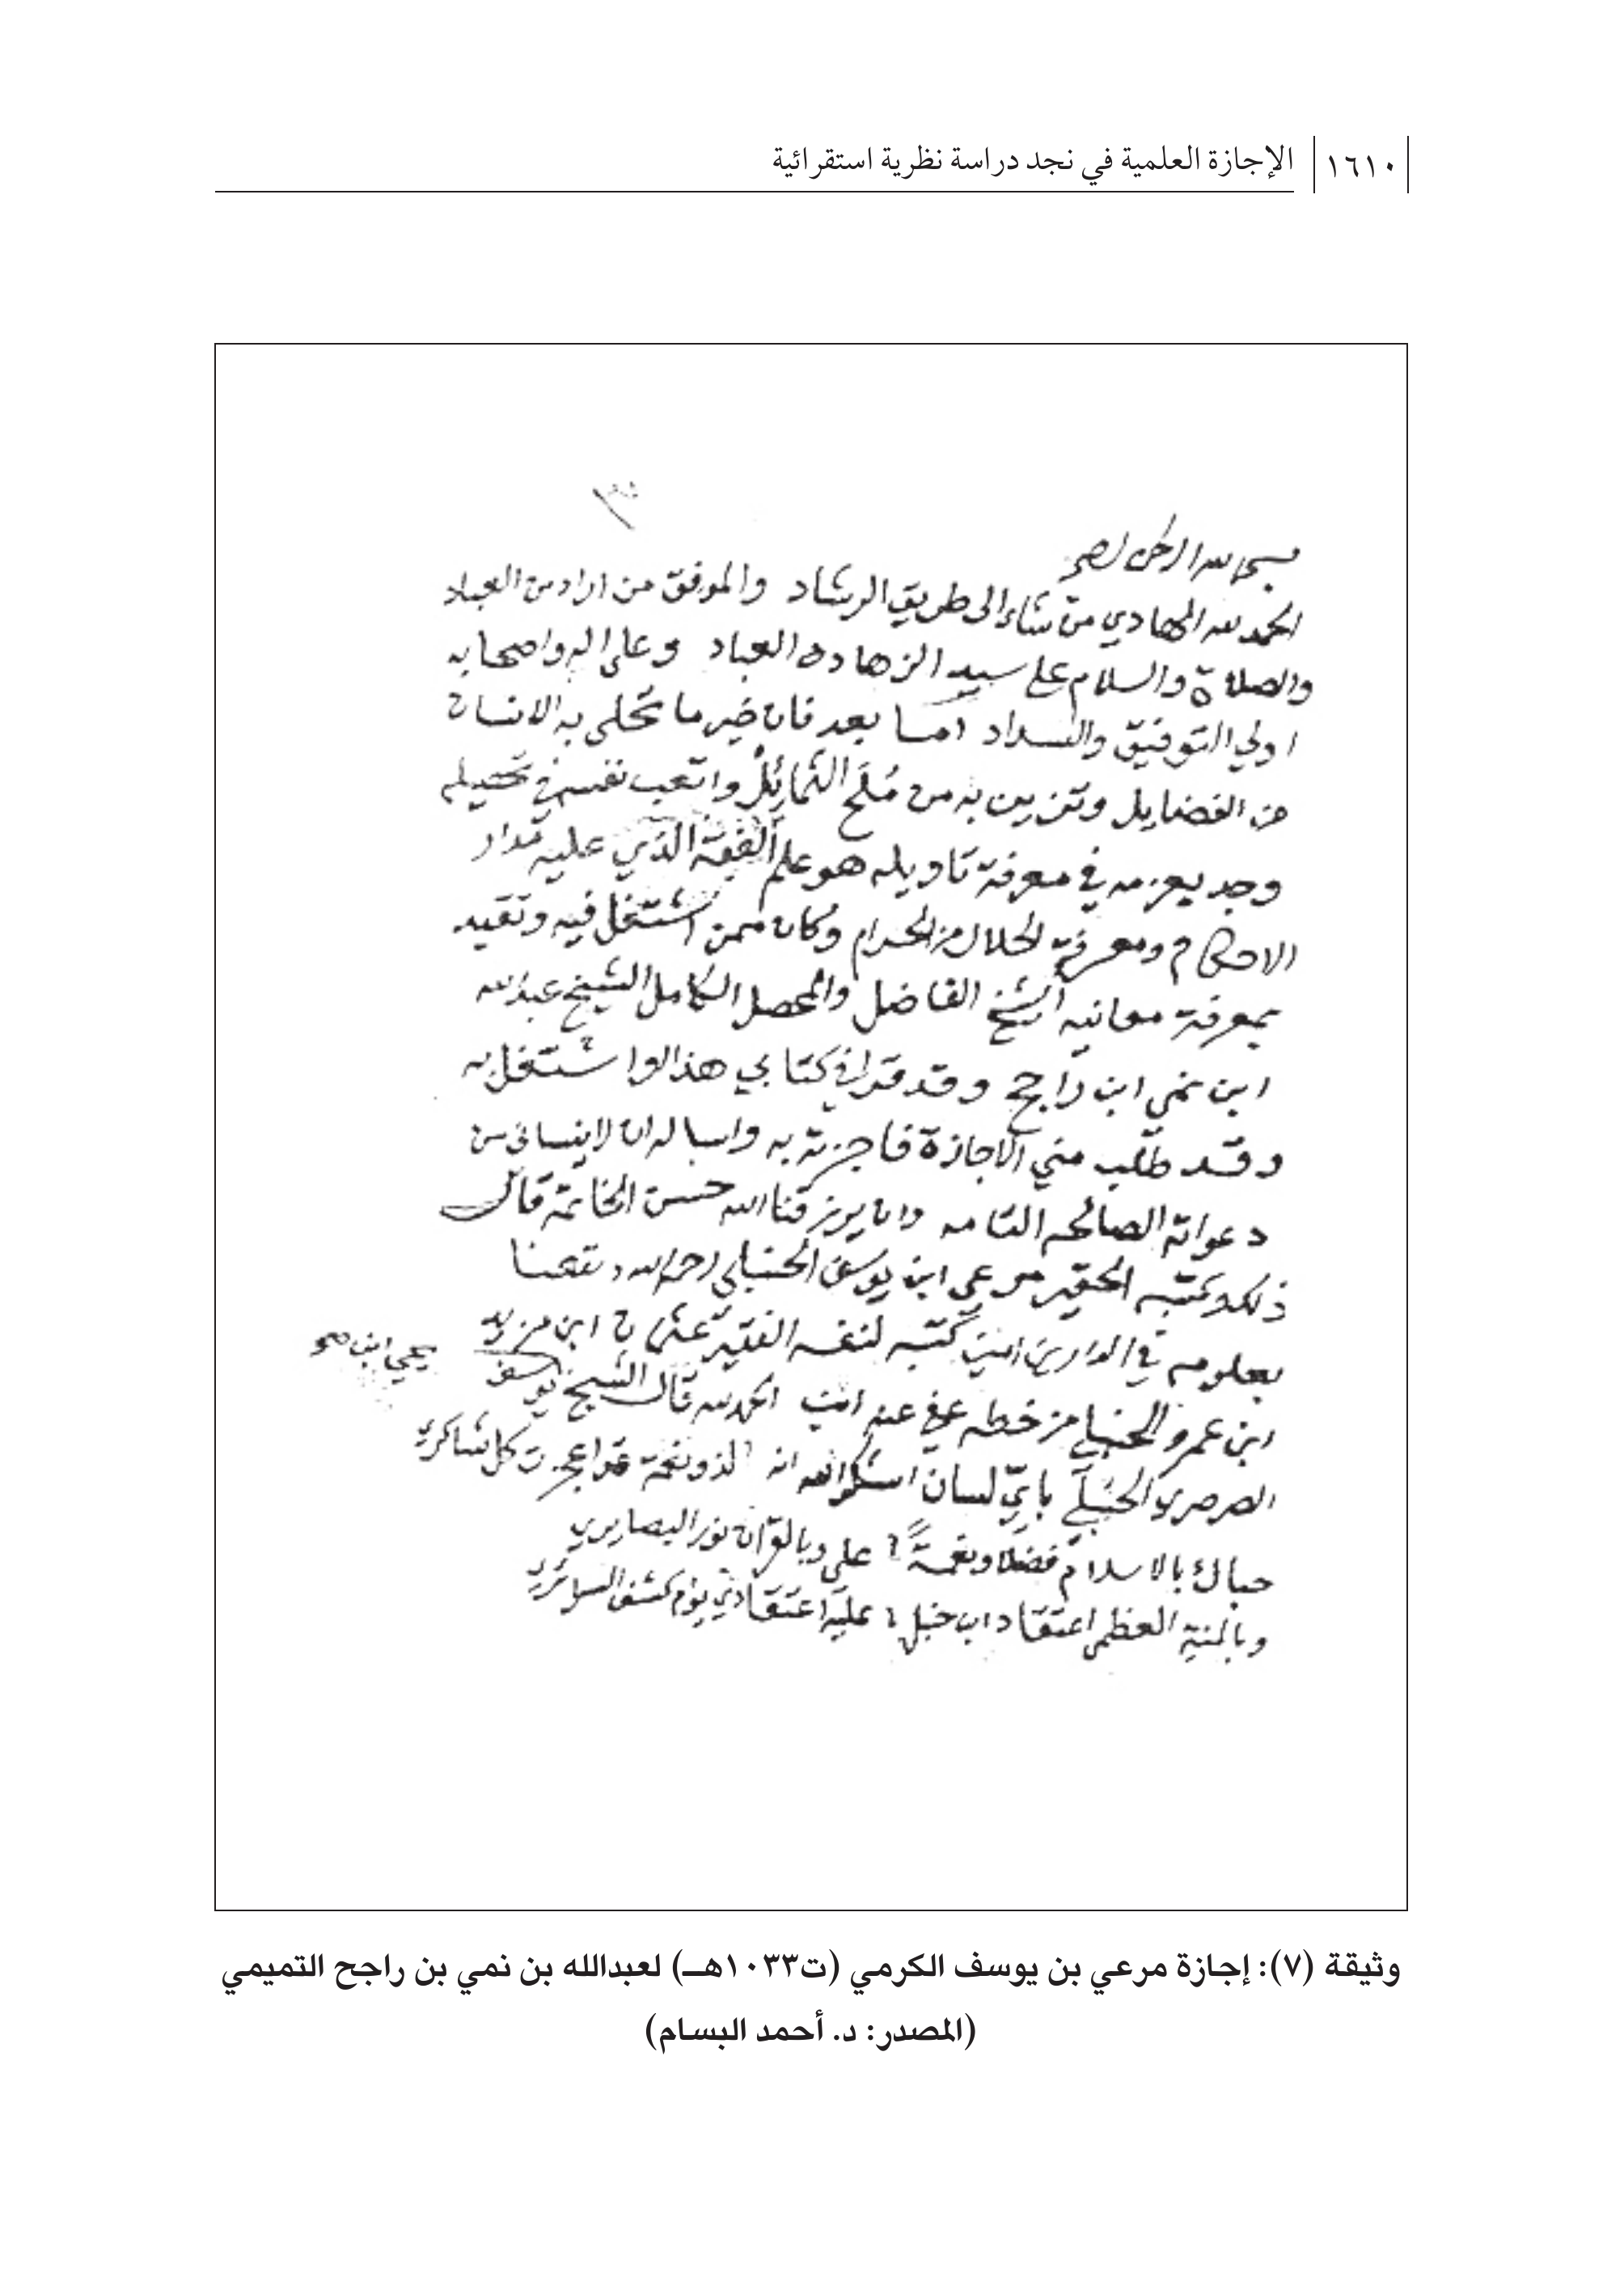 ١٦١٠ الإجازة العلمية في نجد دراسة نظرية استقرائية
بسم الله الرحمن الرحيم
الحمد لله الهادي من شاء الى طريق الرشاد والموفق من اراد من العباد
والصلاة والسلام على سيد الزهاد والعباد وعلى اله واصحابه
اولي التوفيق والسداد اما بعد فان خير ما تحلى به الانسان
من الفضايل وتزين به من ملح الشمائل واتعب نفسه في تحصيله
وجد بعزمه في معرفة تاويله هو علم الفقه الذي عليه مدار
الاحكام ومعرفة الحلال من الحرام وكان ممن اشتغل فيه وتقيد
بمعرفة معانيه الشيخ الفاضل والمحصل الكامل الشيخ عبدالله
ابن نمي ابن راجح وقد قرا في كتابي هذا واشتغل به
وقد طلب مني الاجازة فاجزته به واساله ان لا ينساني من
دعواته الصالحه التامه وان يرزقنا الله حسن الخاتمة قال
ذلك وكتبه الحقير مرعي ابن يوسف الحنبلي رحمه الله ونفعنا
بعلومه في الدارين امين كتبه لنفسه الفقير عثمان ابن مزيد
ابن عمرو الحنبلي من خطه عفي عنه امين الحمد لله قال الشيخ يوسف يحيى ابن
الصرصري الحنبلي باي لسان اشكر الله انه لذو نعمة قد اعجزت كل شاكر
حباك بالاسلام فضلا ونعمة علي وبالقران نور البصاير
وبالمنة العظمى اعتقاد ابن حنبل عليه اعتقادي يوم كشف السرائر
وثيقة (٧): إجازة مرعي بن يوسف الكرمي (ت١٠٣٣هـ) لعبدالله بن نمي بن راجح التميمي
(المصدر: د. أحمد البسام)